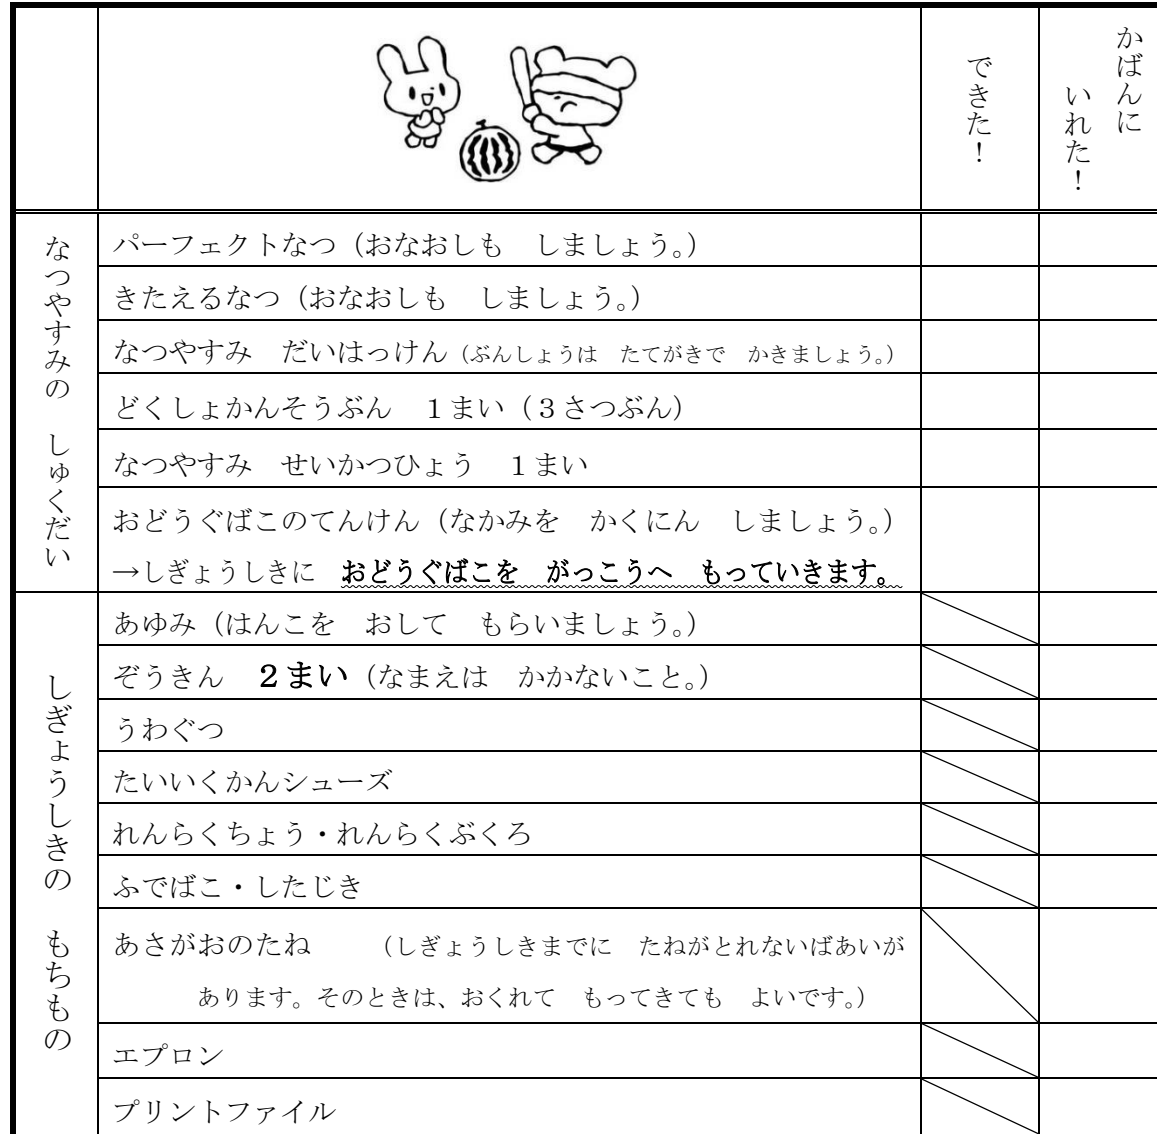 できた！
かばんに
いれた！
なつやすみの　しゅくだい
パーフェクトなつ（おなおしも　しましょう。）
きたえるなつ（おなおしも　しましょう。）
なつやすみ　だいはっけん（ぶんしょうは　たてがきで　かきましょう。）
どくしょかんそうぶん　１まい（３さつぶん）
なつやすみ　せいかつひょう　１まい
おどうぐばこのてんけん（なかみを　かくにん　しましょう。）
→しぎょうしきに　おどうぐばこを　がっこうへ　もっていきます。
しぎょうしきの　もちもの
あゆみ（はんこを　おして　もらいましょう。）
ぞうきん　２まい（なまえは　かかないこと。）
うわぐつ
たいいくかんシューズ
れんらくちょう・れんらくぶくろ
ふでばこ・したじき
あさがおのたね　　（しぎょうしきまでに　たねがとれないばあいが
あります。そのときは、おくれて　もってきても　よいです。）
エプロン
プリントファイル